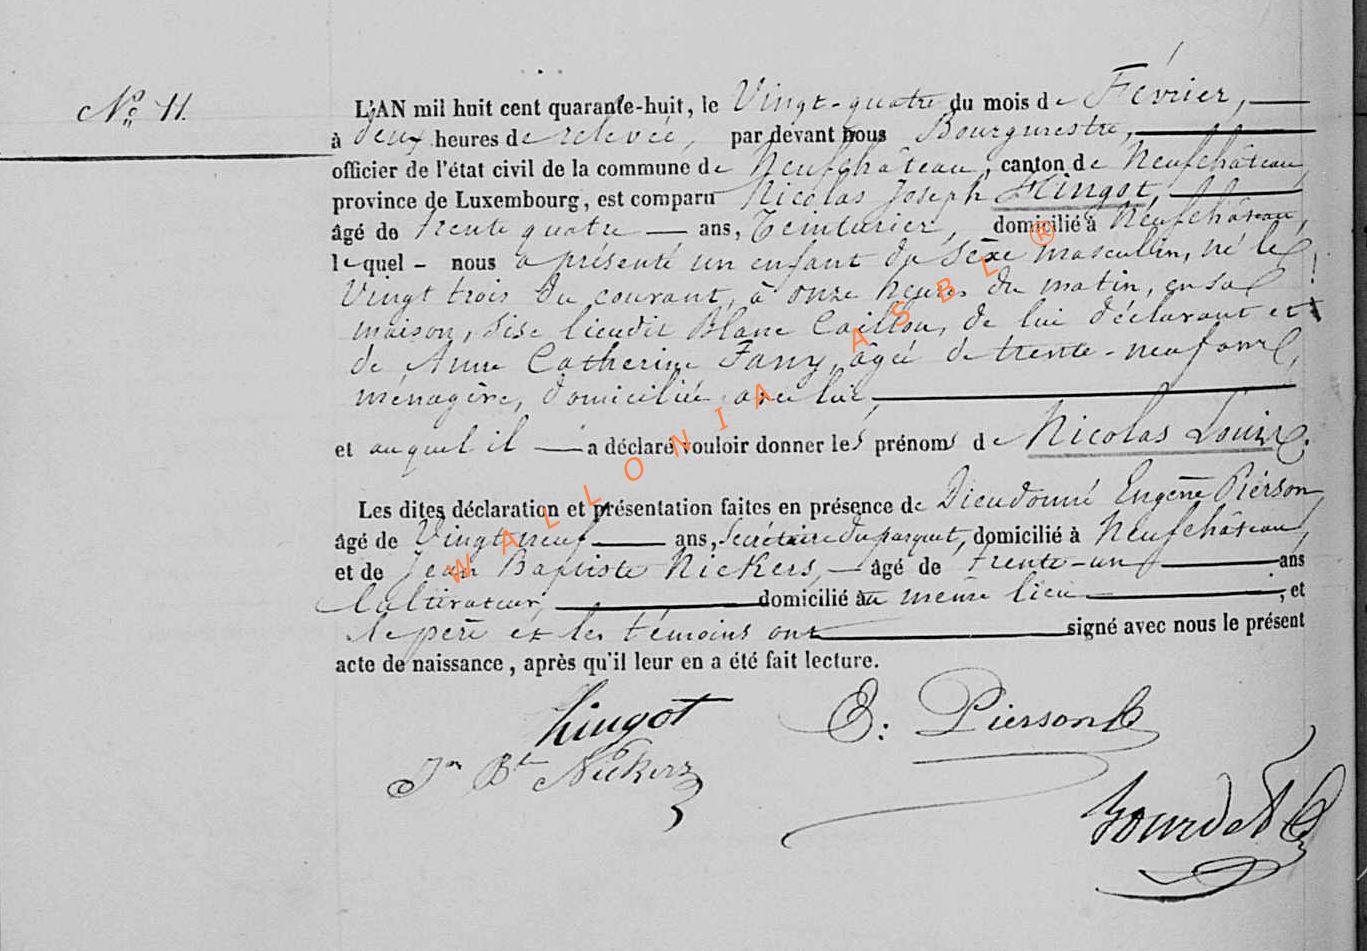 N° 11.
L'AN mil huit cent quarante-huit, le Vingt-quatre du mois de Février,
à deux heures de relevée, par devant nous Bourgmestre,
officier de l'état civil de la commune de Neufchâteau, canton de Neufchâteau,
province de Luxembourg, est comparu Nicolas Joseph Hingot,
âgé de trente quatre ans, Teinturier, domicilié à Neufchâteau,
lequel nous a présenté un enfant du sexe masculin, né le
Vingt trois du courant, à onze heures du matin, en sa
maison, sise lieudit Blanc Caillou, de lui déclarant et
de Anne Catherine Fany, âgée de trente-neuf ans,
ménagère, domiciliée avec lui,
et auquel il a déclaré vouloir donner les prénoms de Nicolas Louis.
Les dites déclaration et présentation faites en présence de Dieudonné Eugène Piérson,
âgé de Vingt neuf ans, Secrétaire du parquet, domicilié à Neufchâteau,
et de Jean Baptiste Nickers, âgé de trente-un ans
Cultivateur, domicilié au même lieu ; et
le père et les témoins ont signé avec nous le présent
acte de naissance, après qu'il leur en a été fait lecture.
hingot E: Pierson
Jn Bte Nickers
WALLONIA ASBL ®